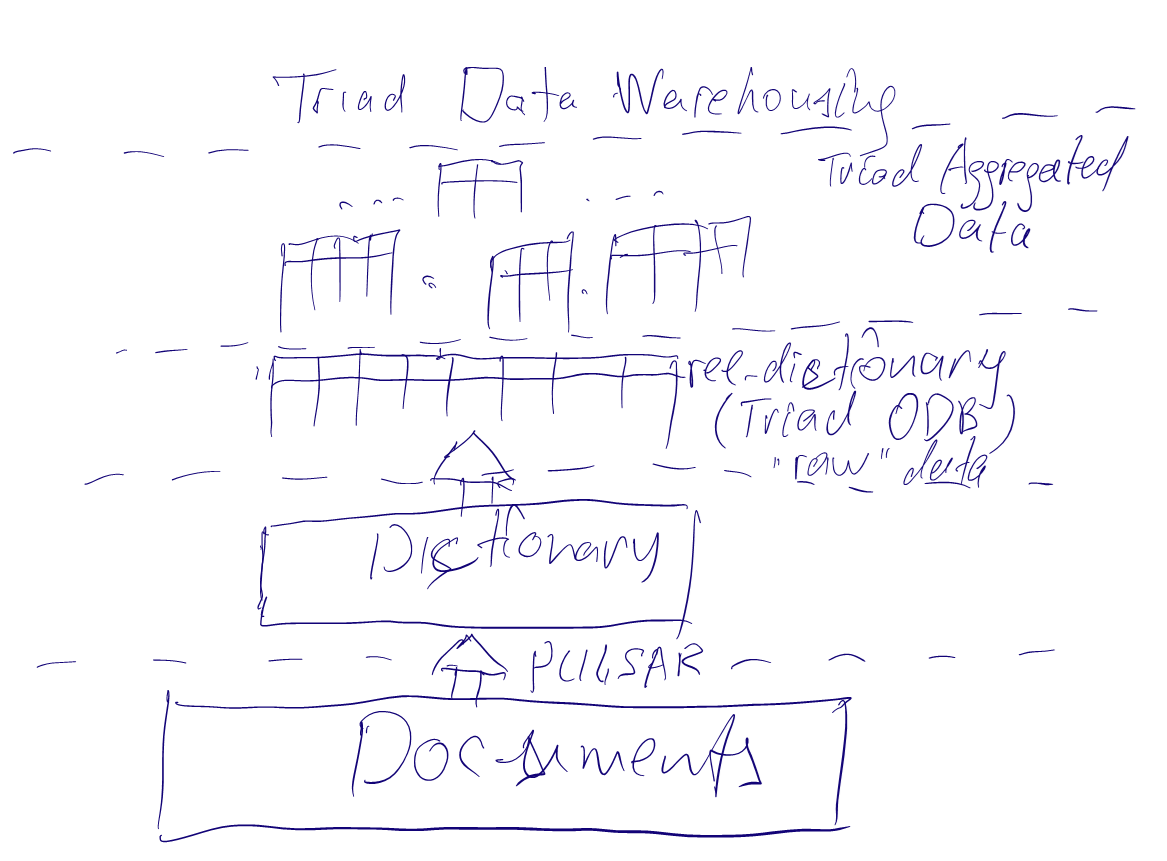 Triad Data Warehousing
Triad Aggregated
Data
rel-dictionary
(Triad ODB)
"raw" data
Dictionary
PULSAR
Documents